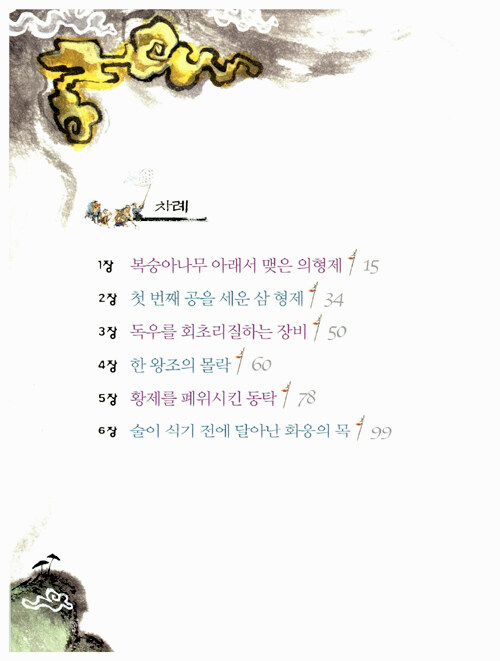 차례
1장 복숭아나무 아래서 맺은 의형제 15
2장 첫 번째 공을 세운 삼 형제 34
3장 독우를 회초리질하는 장비 50
4장 한 왕조의 몰락 60
5장 황제를 폐위시킨 동탁 78
6장 술이 식기 전에 달아난 화웅의 목 99